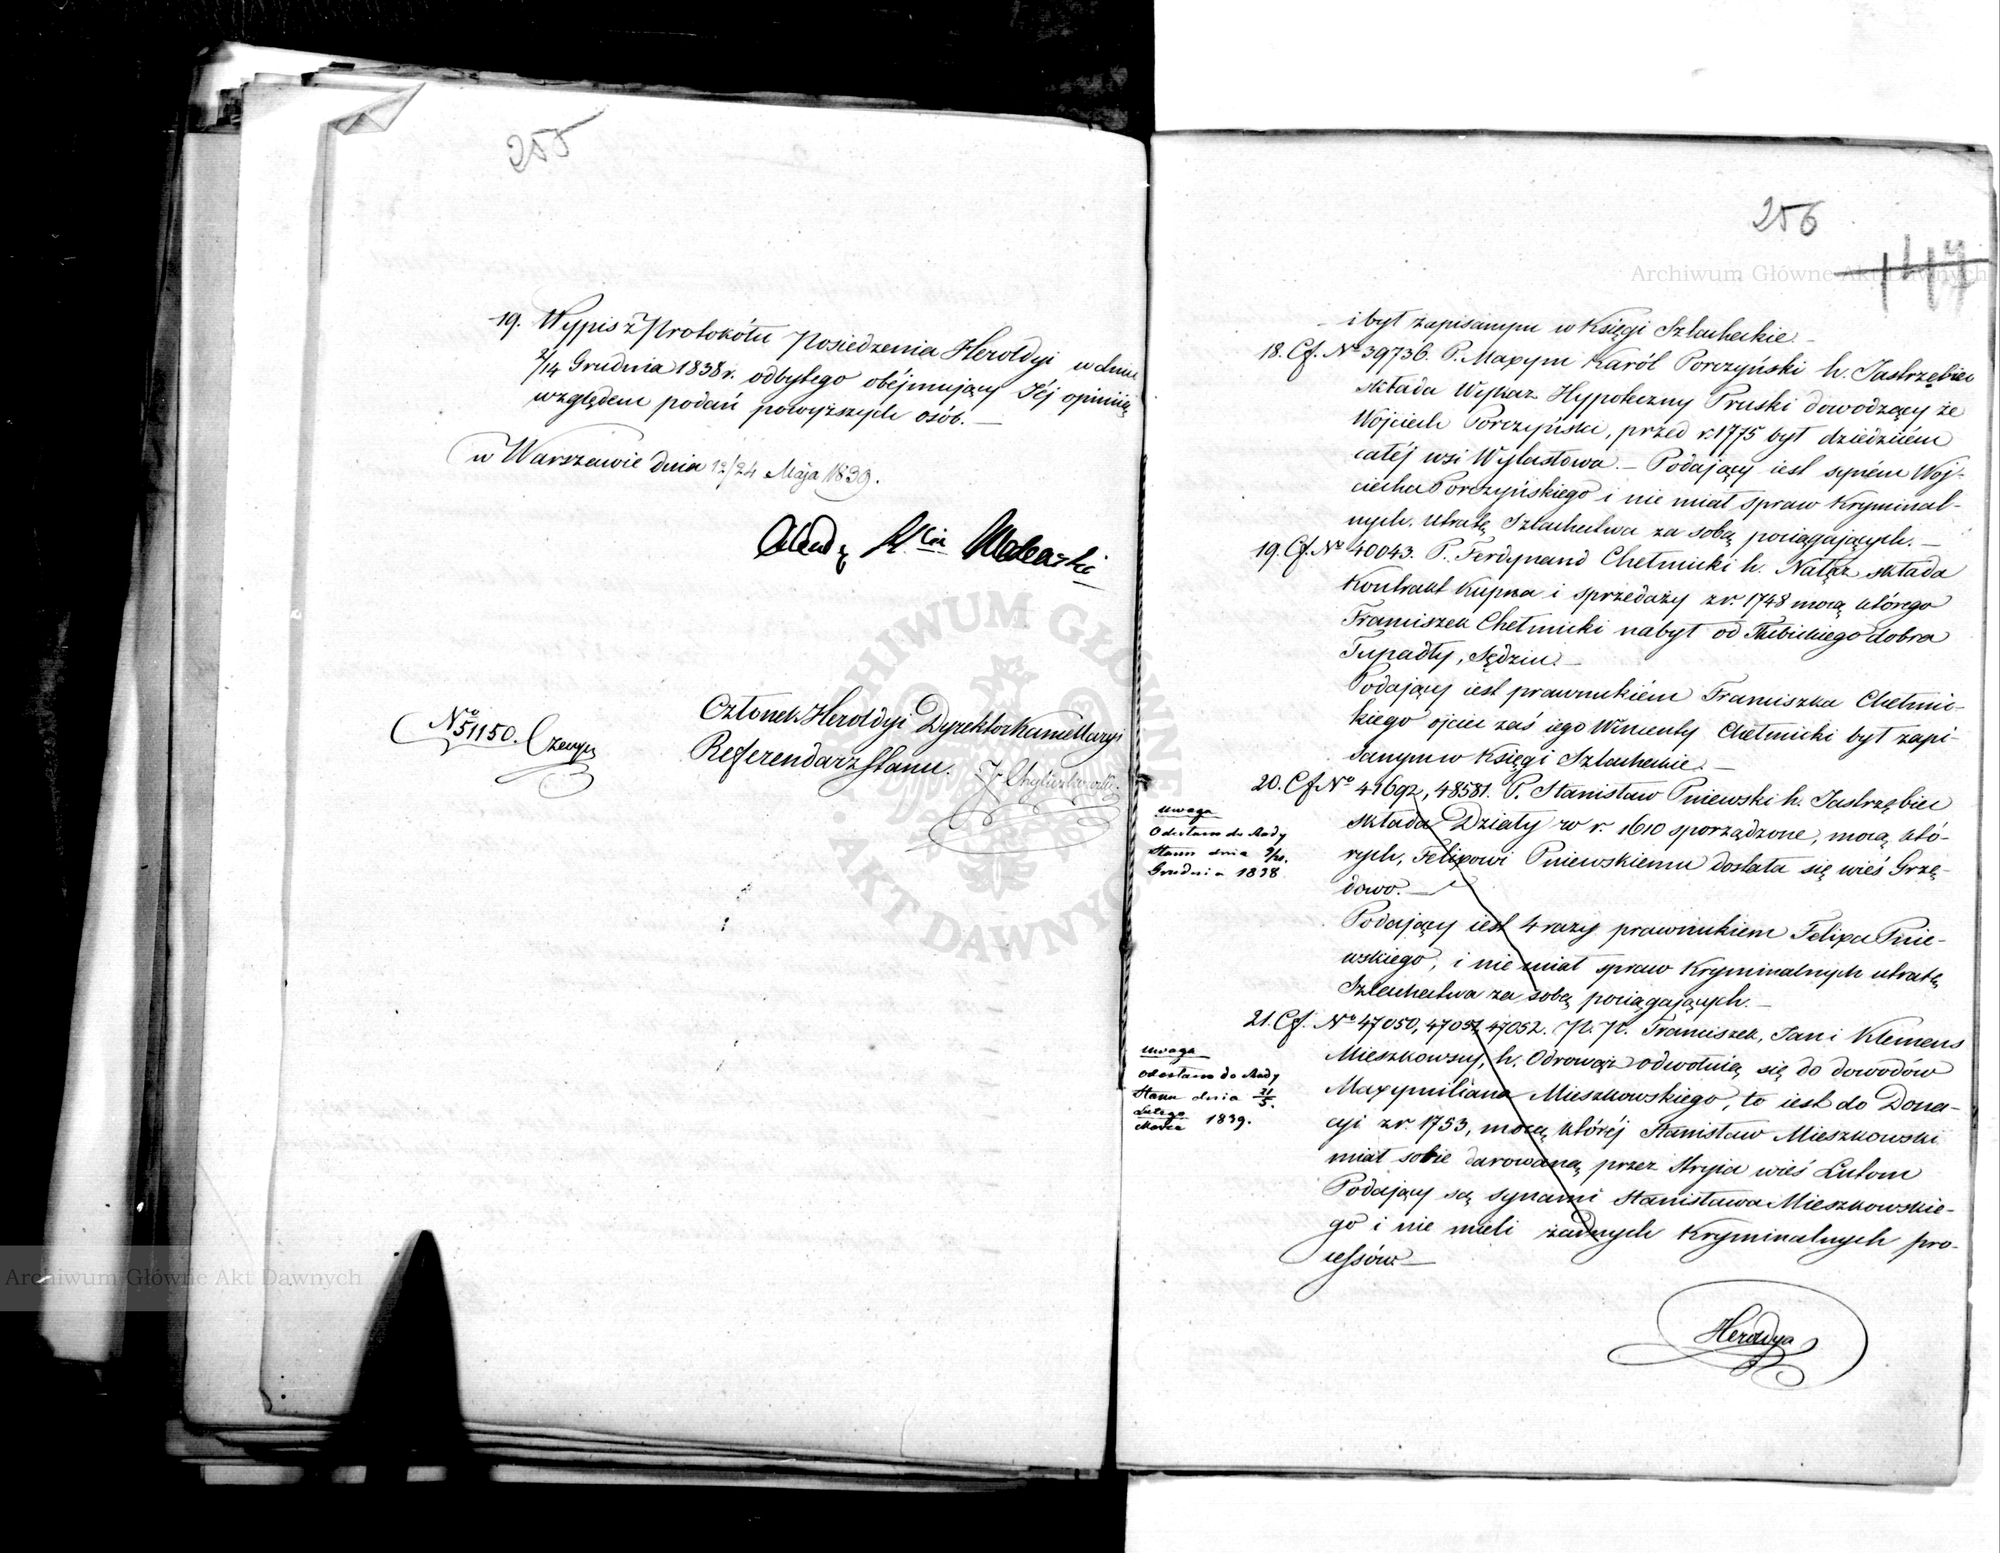 255
19. Wypis z Protokółu Posiedzenia Heroldyi w dniu
2/14 Grudnia 1838 r. odbytego obéjmujący Jéj opinię
względem podań powyższych osób. —
w Warszawie dnia 12/24 Maja 1839.
Członek Heroldyi Dyrektor Kancellaryi
Referendarz Stanu.
No 51150.
256
147
i był zapisanym w Księgi Szlacheckie —
18. Cf. No 39736. P. Maxym Karól Porczyński h. Jastrzębiec
składa Wykaz Hypoteczny Pruski dowodzący że
Wojciech Porczyński, przed r. 1775 był dziedzicem
całéj wsi Wylastowa. — Podający iest synem Woj-
ciecha Porczyńskiego i nie miał spraw Kryminal-
nych, utratę Szlachectwa za sobą pociągających. —
19. Cf. No 40043. P. Ferdynand Chełmicki h. Nałęcz składa
Kontrakt Kupna i sprzedaży z r. 1748 mocą którego
Franciszek Chełmicki nabył od Tłubickiego dobra
Tupadły, Sędzin. —
Podający iest prawnukiém Franciszka Chełmic-
kiego ojciec zaś iego Wincenty Chełmicki był zapi-
sanym w Księgi Szlacheckie. —
20. Cf. No 41692, 48581. P. Stanisław Pniewski h. Jastrzębiec
składa Działy w r. 1610 sporządzone, mocą któ-
rych, Felixowi Pniewskiemu dostała się wieś Grzę-
dowo. —
Podający iest 4 razy prawnukiem Felixa Pnie-
wskiego, i nie miał spraw Kryminalnych utratę
Szlachectwa za sobą pociągających. —
Uwaga
Odesłano do Rady
Stanu dnia 9/21.
Grudnia 1838
21. Cf. No 47050, 47051, 47052. P. P. Franciszek, Jan i Klemens
Mieszkowscy, h. Odrowąż odwołują się do dowodów
Maxymiliana Mieszkowskiego, to iest do Dona-
cyi z r. 1753, mocą któréj Stanisław Mieszkowski
miał sobie darowaną przez Stryia wieś Lutom
Podający są synami Stanisława Mieszkowskie-
go i nie mieli żadnych Kryminalnych pro-
cessów —
Uwaga
Odesłano do Rady
Stanu dnia 21/5.
Lutego
Marca 1839.
Heroldya
ARCHIWUM GŁÓWNE AKT DAWNYCH
Archiwum Główne Akt Dawnych
Archiwum Główne Akt Dawnych